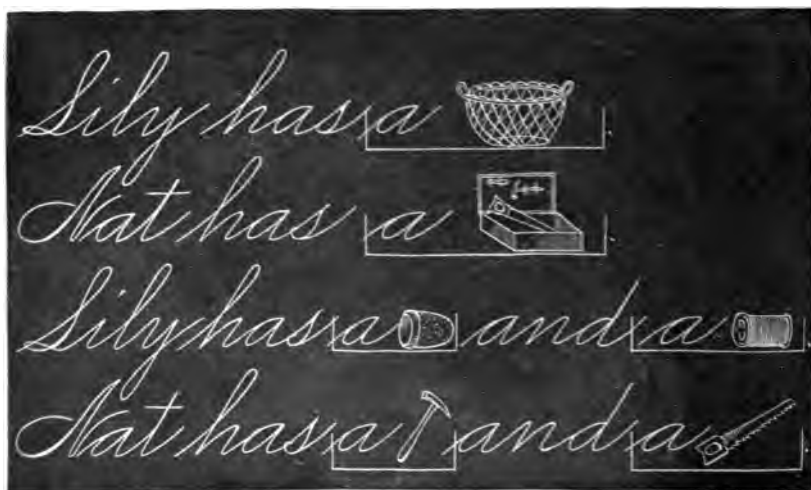 Lily has a .
Nat has a .
Lily has a and a .
Nat has a and a .